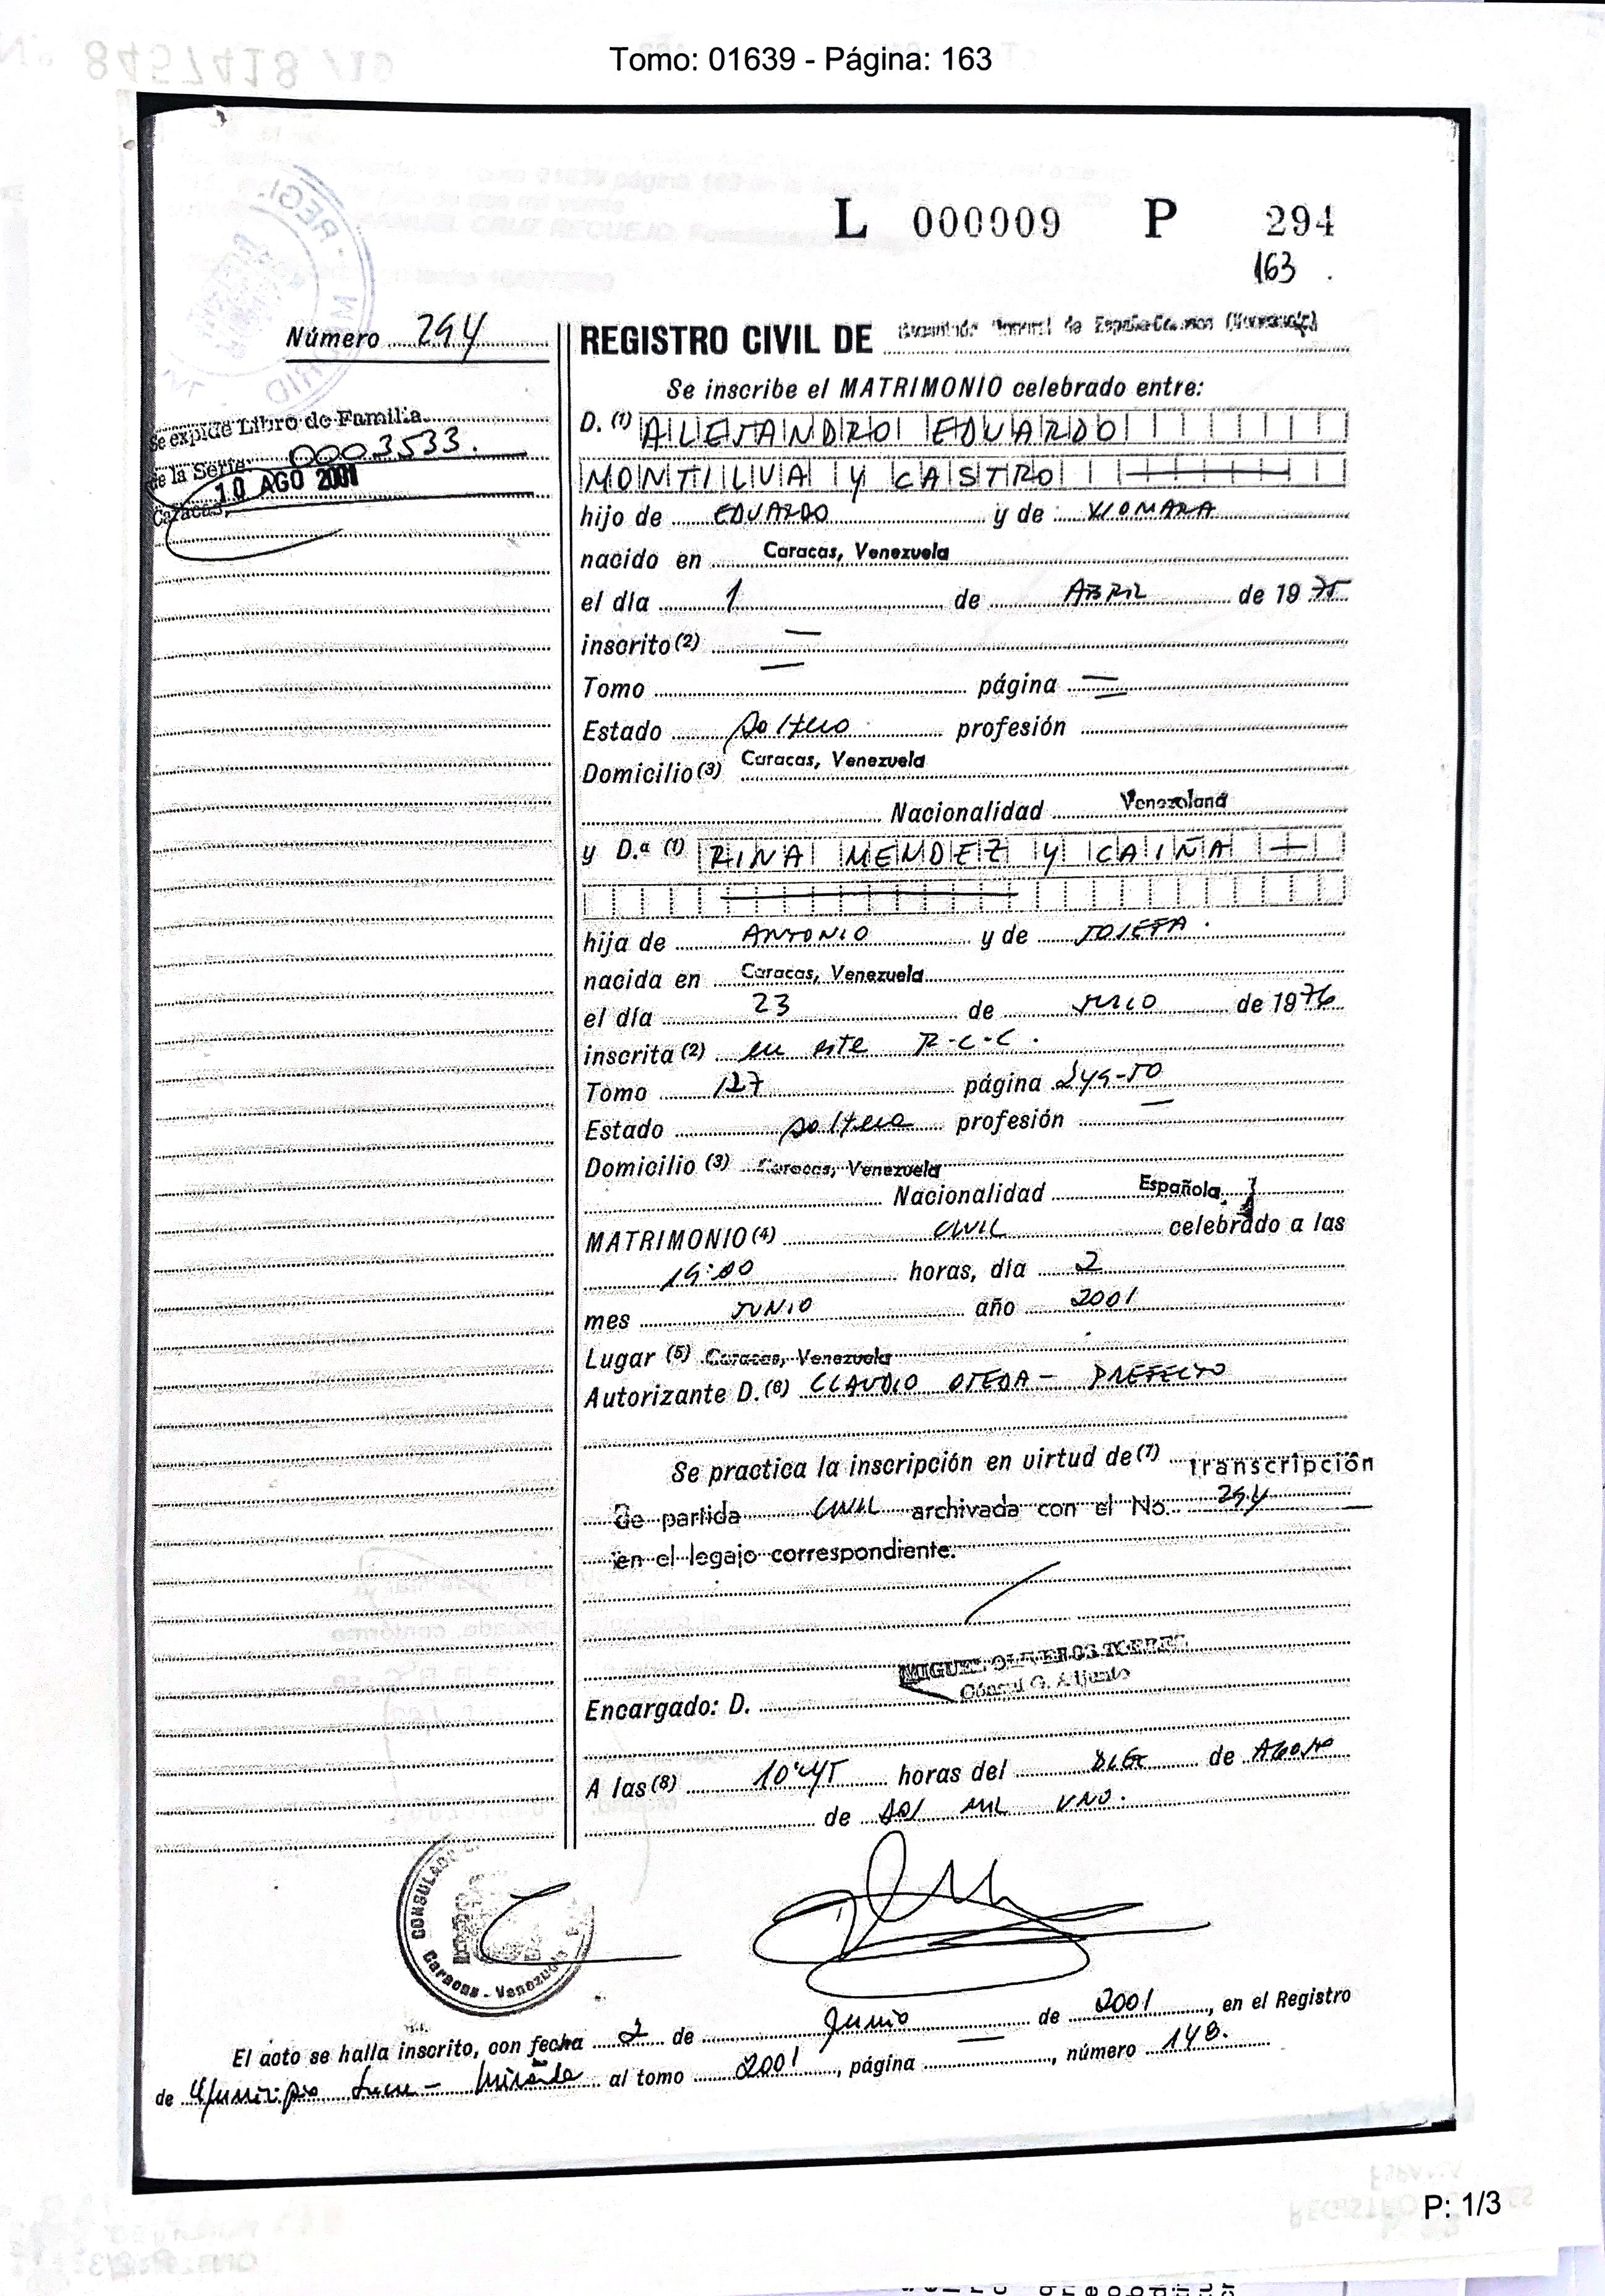 Tomo: 01639 - Página: 163
L 000009 P 294
163
Número 294
Se expide Libro de Familia
de la Serie 0003533.
10 AGO 2001
Caracas,
REGISTRO CIVIL DE Consulado General de España-Caracas (Venezuela)
Se inscribe el MATRIMONIO celebrado entre:
D. (1) ALEJANDRO EDUARDO
MONTILVA Y CASTRO
hijo de EDUARDO y de XIOMARA
nacido en Caracas, Venezuela
el día 1 de ABRIL de 1975
inscrito (2)
Tomo página
Estado soltero profesión
Domicilio (3) Caracas, Venezuela
Nacionalidad Venezolana
y D.ª (1) RINA MENDEZ Y CAIÑA
hija de ANTONIO y de JOSEFA.
nacida en Caracas, Venezuela
el día 23 de JULIO de 1976
inscrita (2) en este R.C.C.
Tomo 127 página 249-50
Estado soltera profesión
Domicilio (3) Caracas, Venezuela
Nacionalidad Española
MATRIMONIO (4) CIVIL celebrado a las
19:00 horas, día 2
mes JUNIO año 2001
Lugar (5) Caracas, Venezuela
Autorizante D. (6) CLAUDIO OJEDA - PREFECTO
Se practica la inscripción en virtud de (7) transcripción
de partida CIVIL archivada con el No. 294
en el legajo correspondiente.
MIGUEL OLIVEROS TORRES
Cónsul G. Adjunto
Encargado: D.
A las (8) 10:45 horas del DIEZ de AGOSTO
de DOS MIL UNO.
CONSULADO
Caracas - Venezuela
El acto se halla inscrito, con fecha 2 de Junio de 2001, en el Registro
de Municipio Sucre - Miranda al tomo 2001, página, número 148.
P: 1/3